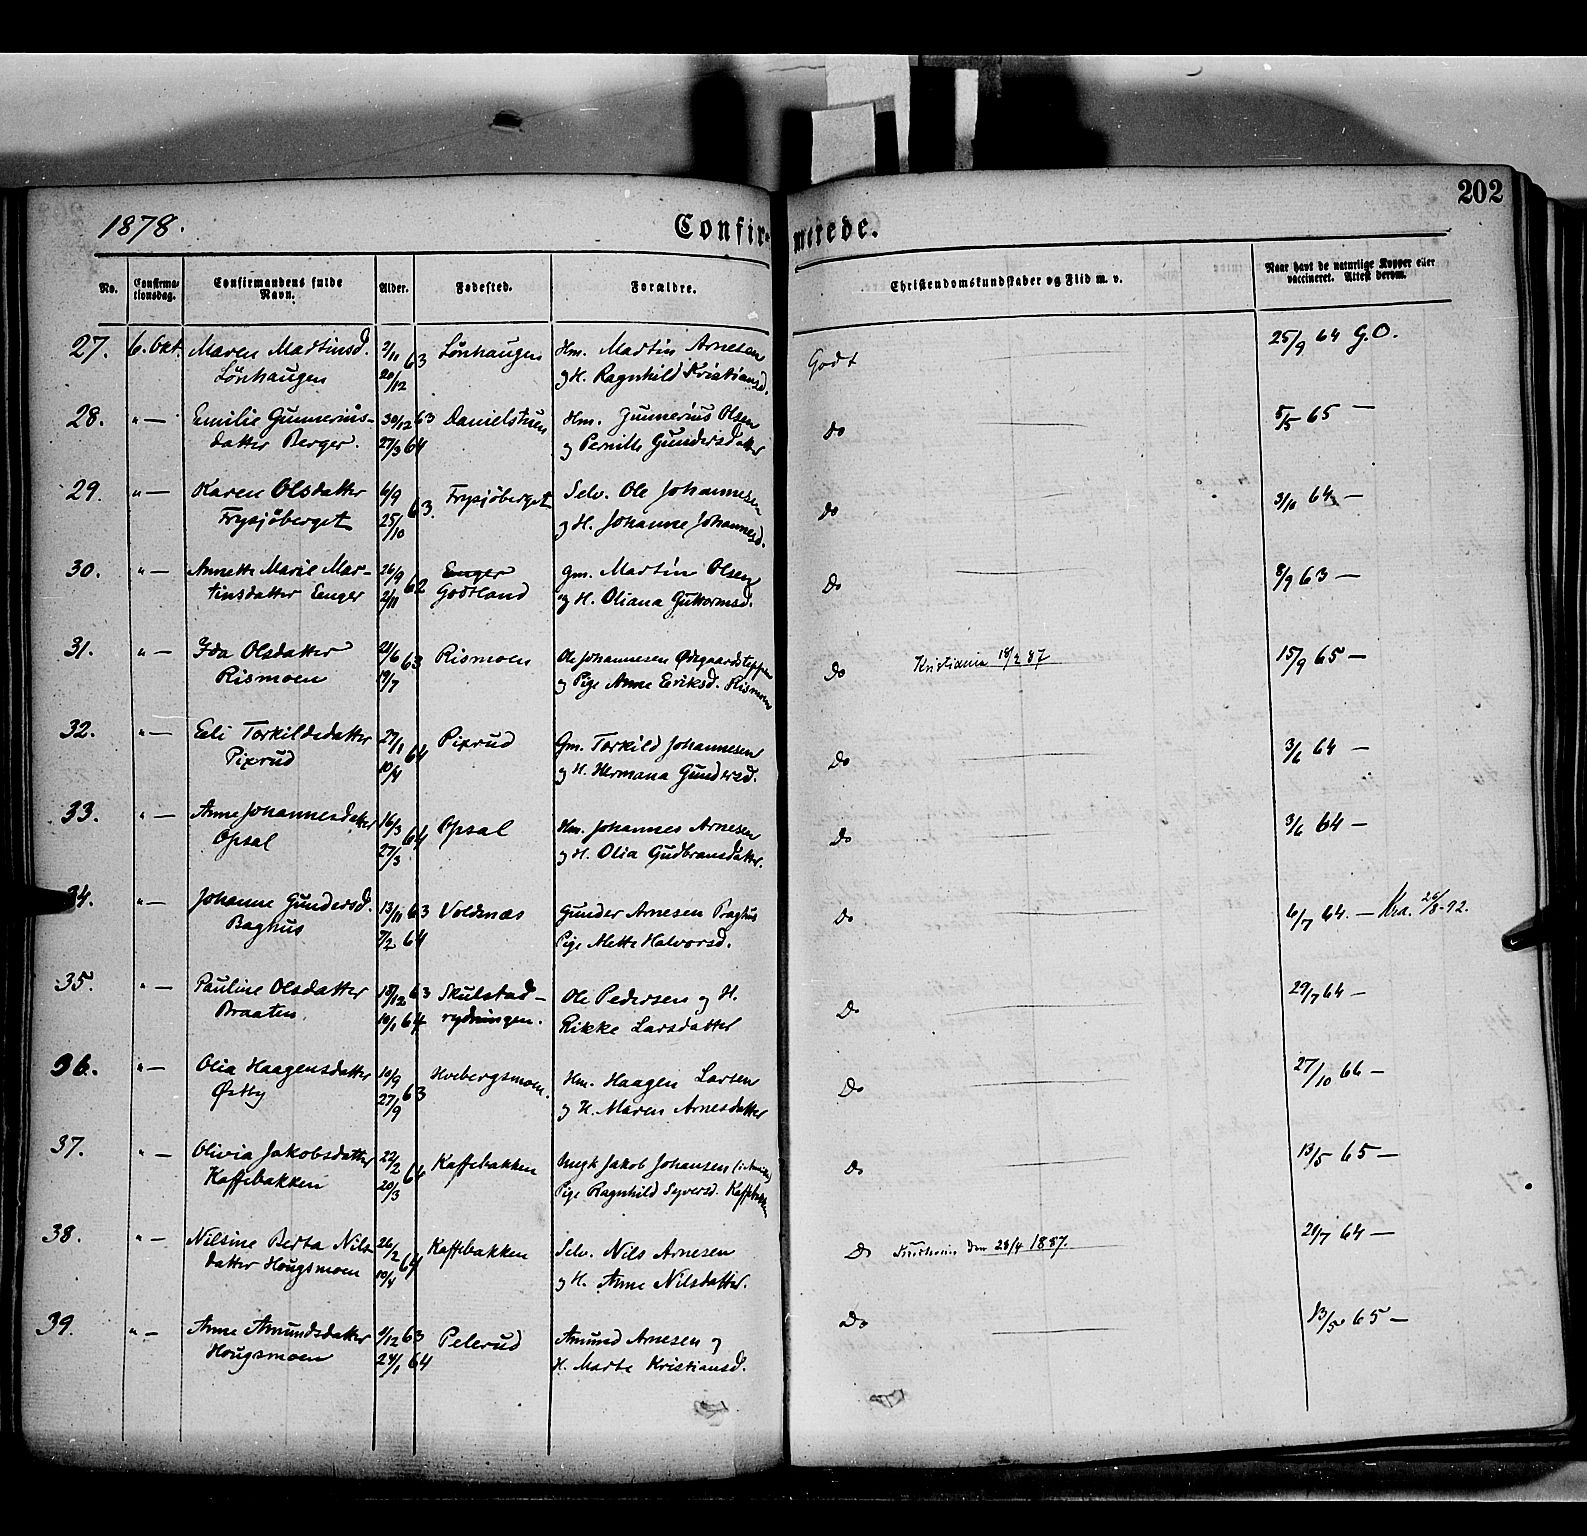 202
1878.
Confirmerede.
No.
Confirma-
tionsdag.
Confirmandens fulde
Navn.
Alder.
Fødested.
Forældre.
Christendomskundskaber og Flid m. v.
Naar havt de naturlige Kopper eller
vaccineret. Attest derom.
27. 6. Okt. Maren Martinsd. 2/11 63 Lønhaugen Hm. Martin Arnesen Godt 25/9 64 G.O.
Lønhaugen 20/12 og H. Ragnhild Kristiansd.
28. " — Emilie Gunnerius- 30/12 63 Danielstuen Hm. Gunnerius Olsen do 5/5 65 —
datter Berger. 27/3 64 og Pernille Gundersdatter
29. " — Karen Olsdatter 6/9 63. Frysjøberget Selv. Ole Johannesen do 3/10 64 —
Frysjøberget 25/10 og H. Johanne Johannesd.
30. " — Annette Marie Mar- 26/9 62 Enger Gm. Martin Olsen Do 8/9 63 —
tinsdatter Enger 2/11 Godtland og H. Oliana Guttormsd.
31. " — Ida Olsdatter 28/6 63 Rismoen Ole Johannesen Ødegaardsteppen Do Kristiania 18/2 87 15/9 65 —
Rismoen 19/7 og Pige Anne Eriksd. Rismoen
32. " — Eli Torkildsdatter 27/1 64 Pixrud Gm. Torkild Johannesen Do 3/6 64 —
Pixrud 10/4 og H. Hermana Gundersd.
33. " — Anne Johannesdatter 16/3 64 Opsal Hm. Johannes Arnesen Do 3/6 64 —
Opsal 27/3 og H. Olia Gudbransdatter.
34. " — Johanne Gundersd. 13/11 63 Voldnæs Gunder Arnesen Braghus Do 6/7 64. — Kra. 26/8-92.
Baghus 7/2 64 Pige Mette Halvorsd.
35. " — Pauline Olsdatter 18/12 63 Skulstad- Ole Pedersen og H. Do 29/7 64 —
Braaten. 10/1 64 rydningen. Rikke Larsdatter
36. " — Olia Haagensdatter 10/9 63 Hvebergsmoen. Hm. Haagen Larsen Do 27/10 66 —
Østby 27/9 og H. Maren Arnesdatter
37. " — Olivia Jakobsdatter 22/2 64 Kaffebakken Ungk Jakob Johansen Do 13/5 65 —
Kaffebakken 20/3 Pige Ragnhild Syversd. Kaffebakken
38. " — Nilsine Berta Nils- 26/2 64 Kaffebakken Selv. Nils Arnesen Do den 28/4 1887. 20/7 64 —
datter Hougsmoen 10/4 og H. Anne Nilsdatter.
39. " — Anne Amundsdatter 9/12 63 Pelerud Amund Arnesen og Do 13/5 65 —
Hougsmoen 24/1 64 H. Marte Kristiansd.